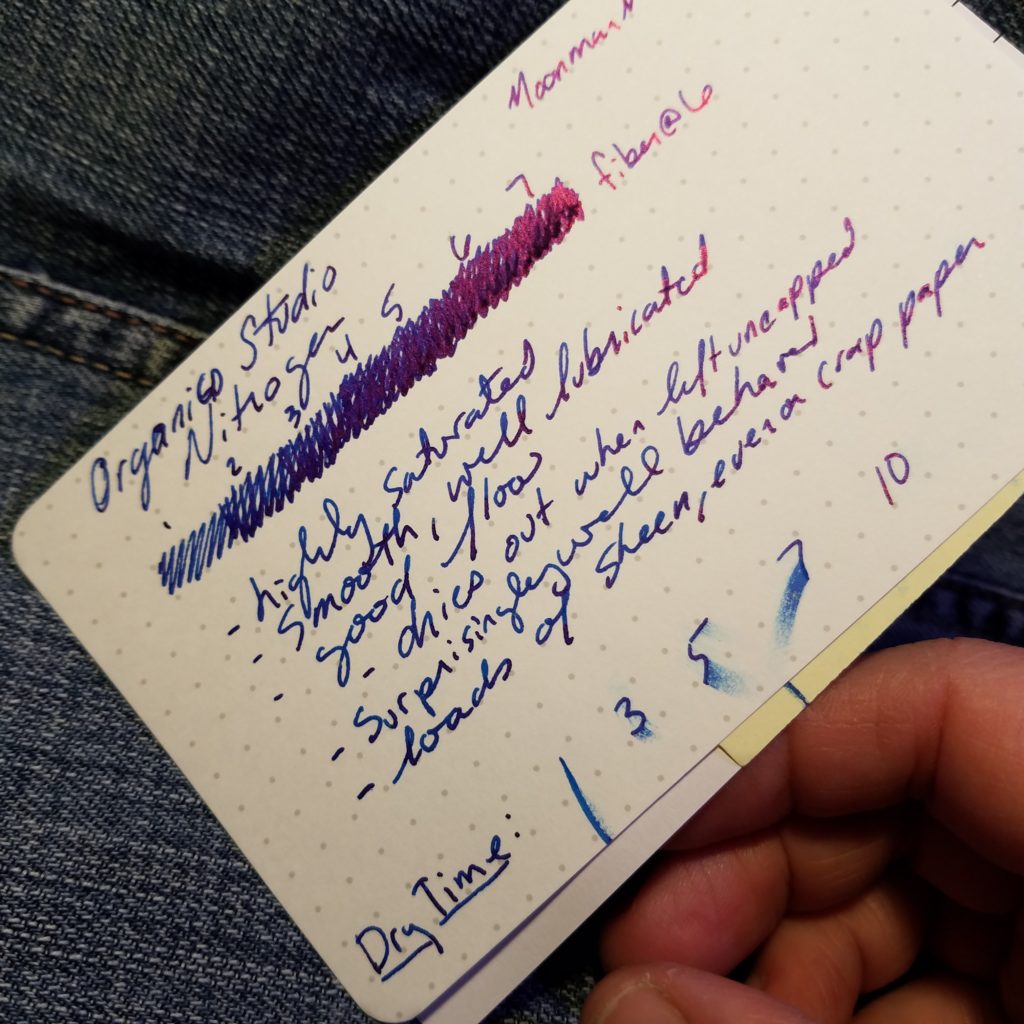 Moonman
fiber@6
Organics Studio
Nitrogen
1 2 3 4 5 6 7
- highly saturated
- smooth, well lubricated
- good flow
- dries out when left uncapped
- Surprisingly well behaved
- loads of sheen, even on crap paper
Dry Time: 1 3 5 7 10